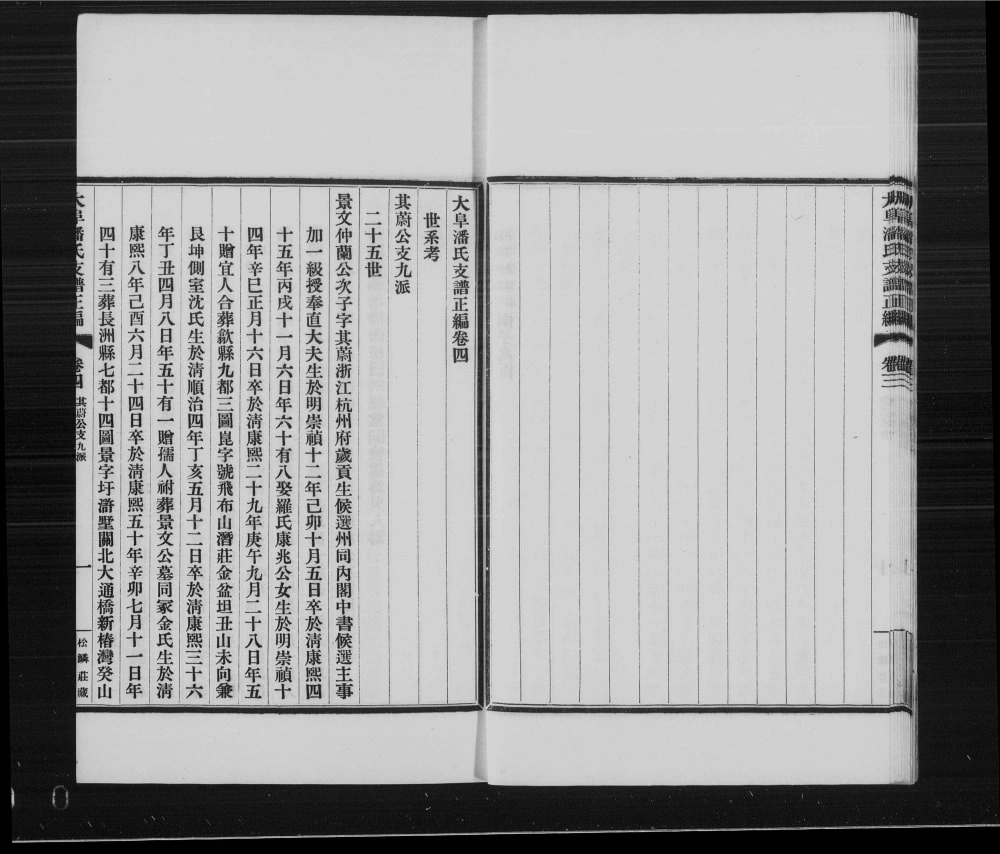 大阜潘氏支譜正編
卷三
大阜潘氏支譜正編卷四
世系考
其蔚公支九派
二十五世
景文仲蘭公次子字其蔚浙江杭州府歲貢生候選州同內閣中書候選主事
加一級授奉直大夫生於明崇禎十二年己卯十月五日卒於淸康熙四
十五年丙戌十一月六日年六十有八娶羅氏康兆公女生於明崇禎十
四年辛巳正月十六日卒於淸康熙二十九年庚午九月二十八日年五
十贈宜人合葬歙縣九都三圖崑字號飛布山潛莊金盆坦丑山未向兼
艮坤側室沈氏生於淸順治四年丁亥五月十二日卒於淸康熙三十六
年丁丑四月八日年五十有一贈孺人祔葬景文公墓同冢金氏生於淸
康熙八年己酉六月二十四日卒於淸康熙五十年辛卯七月十一日年
四十有三葬長洲縣七都十四圖景字圩滸墅關北大通橋新椿灣癸山
大阜潘氏支譜正編
卷四
其蔚公支九派
一
松鱗莊藏